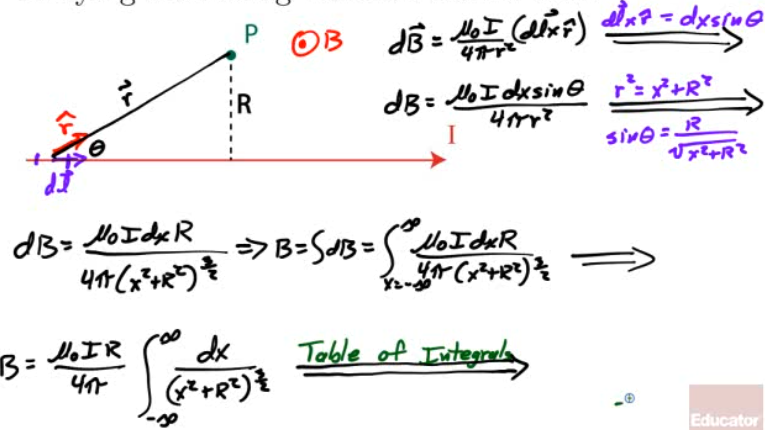 P
⊙B
dB⃗ = μ₀I/4πr² (dl⃗ x r̂) dl⃗ x r̂ = dxsinθ
r⃗
R
dB = μ₀I dx sinθ/4πr² r² = x²+R²
sinθ = R/√x²+R²
r̂
θ
I
dl⃗
dB = μ₀I dx R/4π(x²+R²)^3/2 => B = ∫dB = ∫_x=-∞^∞ μ₀I dx R/4π(x²+R²)^3/2 =>
B = μ₀IR/4π ∫_-∞^∞ dx/(x²+R²)^3/2 Table of Integrals
Educator